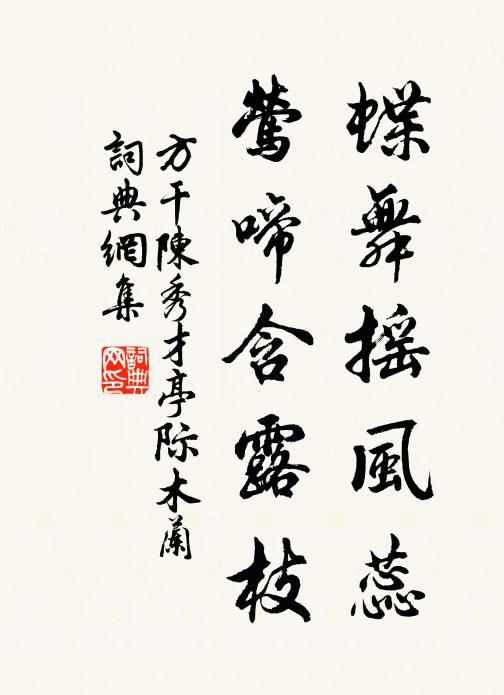 蝶舞摇風蕊
鶯啼含露枝
方干陳秀才亭际木蘭
詞典網集
詞典网印